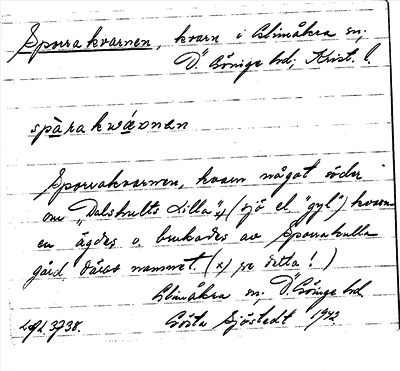 Sporrakvarnen, kvarn i Glimåkra sn,
Ö. Göinge hd; Krist. l.
spàrakwáɔnen
Sporrakvarnen, kvarn något söder
om "Dalshults Lilla" x) (sjö el. "gyl") kvarn-
en ägdes o. brukades av Sporrakulla
gård, därav namnet. (x) se detta!)
Glimåkra sn, Ö. Göinge hd.
Gösta Sjöstedt 1942.